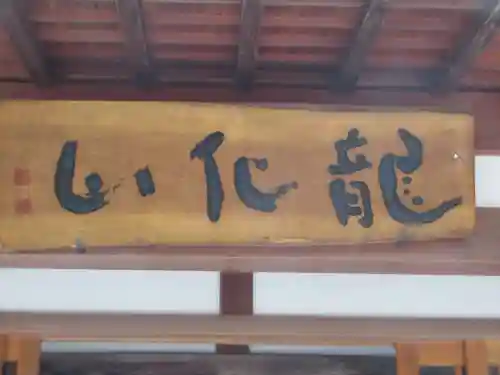 龍化山